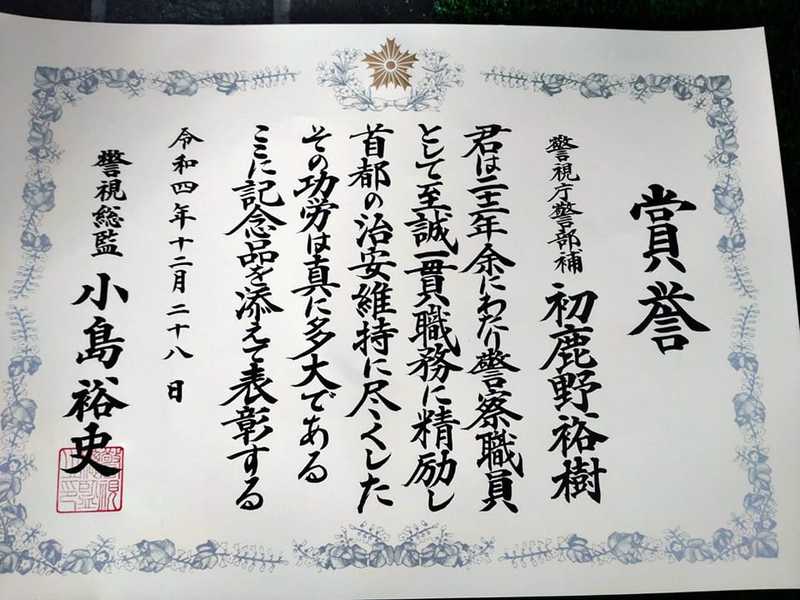 賞誉
警視庁警部補 初鹿野裕樹
君は 年余にわたり警察職員
として至誠一貫職務に精励し
首都の治安維持に尽くした
その功労は真に多大である
ここに記念品を添えて表彰する
令和四年十二月二十八日
警視総監 小島裕史